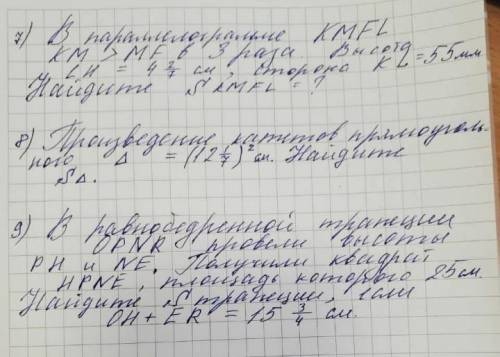 7) В параллелограмме KMFL
KM > MF в 3 раза Высота
LH = 4 2/7 см, сторона KL = 55 мм
Найдите S KMFL = ?
8) Произведение катетов прямоуголь-
ного Δ = (12 1/7)² см. Найдите
SΔ.
9) В равнобедренной трапеции
OPNR провели высоты
PH и NE. Получили квадрат
HPNE, площадь которого 25 см.
Найдите S трапеции, если
OH + ER = 15 3/4 см.